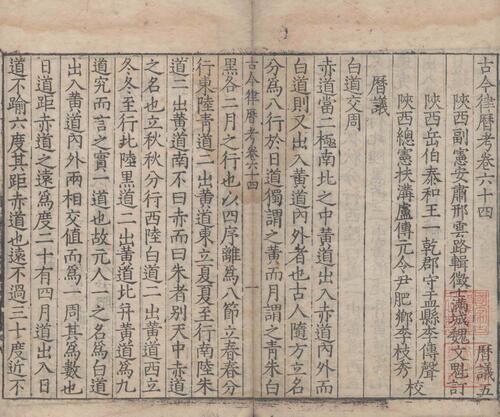 古今律曆考卷六十四 曆議五
陜西副憲安肅邢雲路輯徵 滿城魏文魁訂
陜西岳伯泰和王一乾郡守孟縣李傳聲
陜西總憲扶溝盧傳元令尹肥鄉李枝秀 校
曆議
白道交周
赤道當二極南北之中黃道出入赤道內外而
白道則又出入黃道內外者也古人隨方立名
分為八行於日道獨謂之黃而月謂之青朱白
黑各二月之行也以四序離為八節立春春分
古今律曆考卷六十四 一
行東陸青道二出黃道東立夏夏至行南陸朱
道二出黃道南不曰赤而曰朱者別天中赤道
之名也立秋秋分行西陸白道二出黃道西立
冬冬至行北陸黑道二出黃道北并黃道為九
道究而言之實一道也故元人一之名為白道
出入黃道內外兩相交值而為一周其為數也
日道距赤道之遠為度二十有四月道出入日
道不踰六度其距赤道也遠不過三十度近不